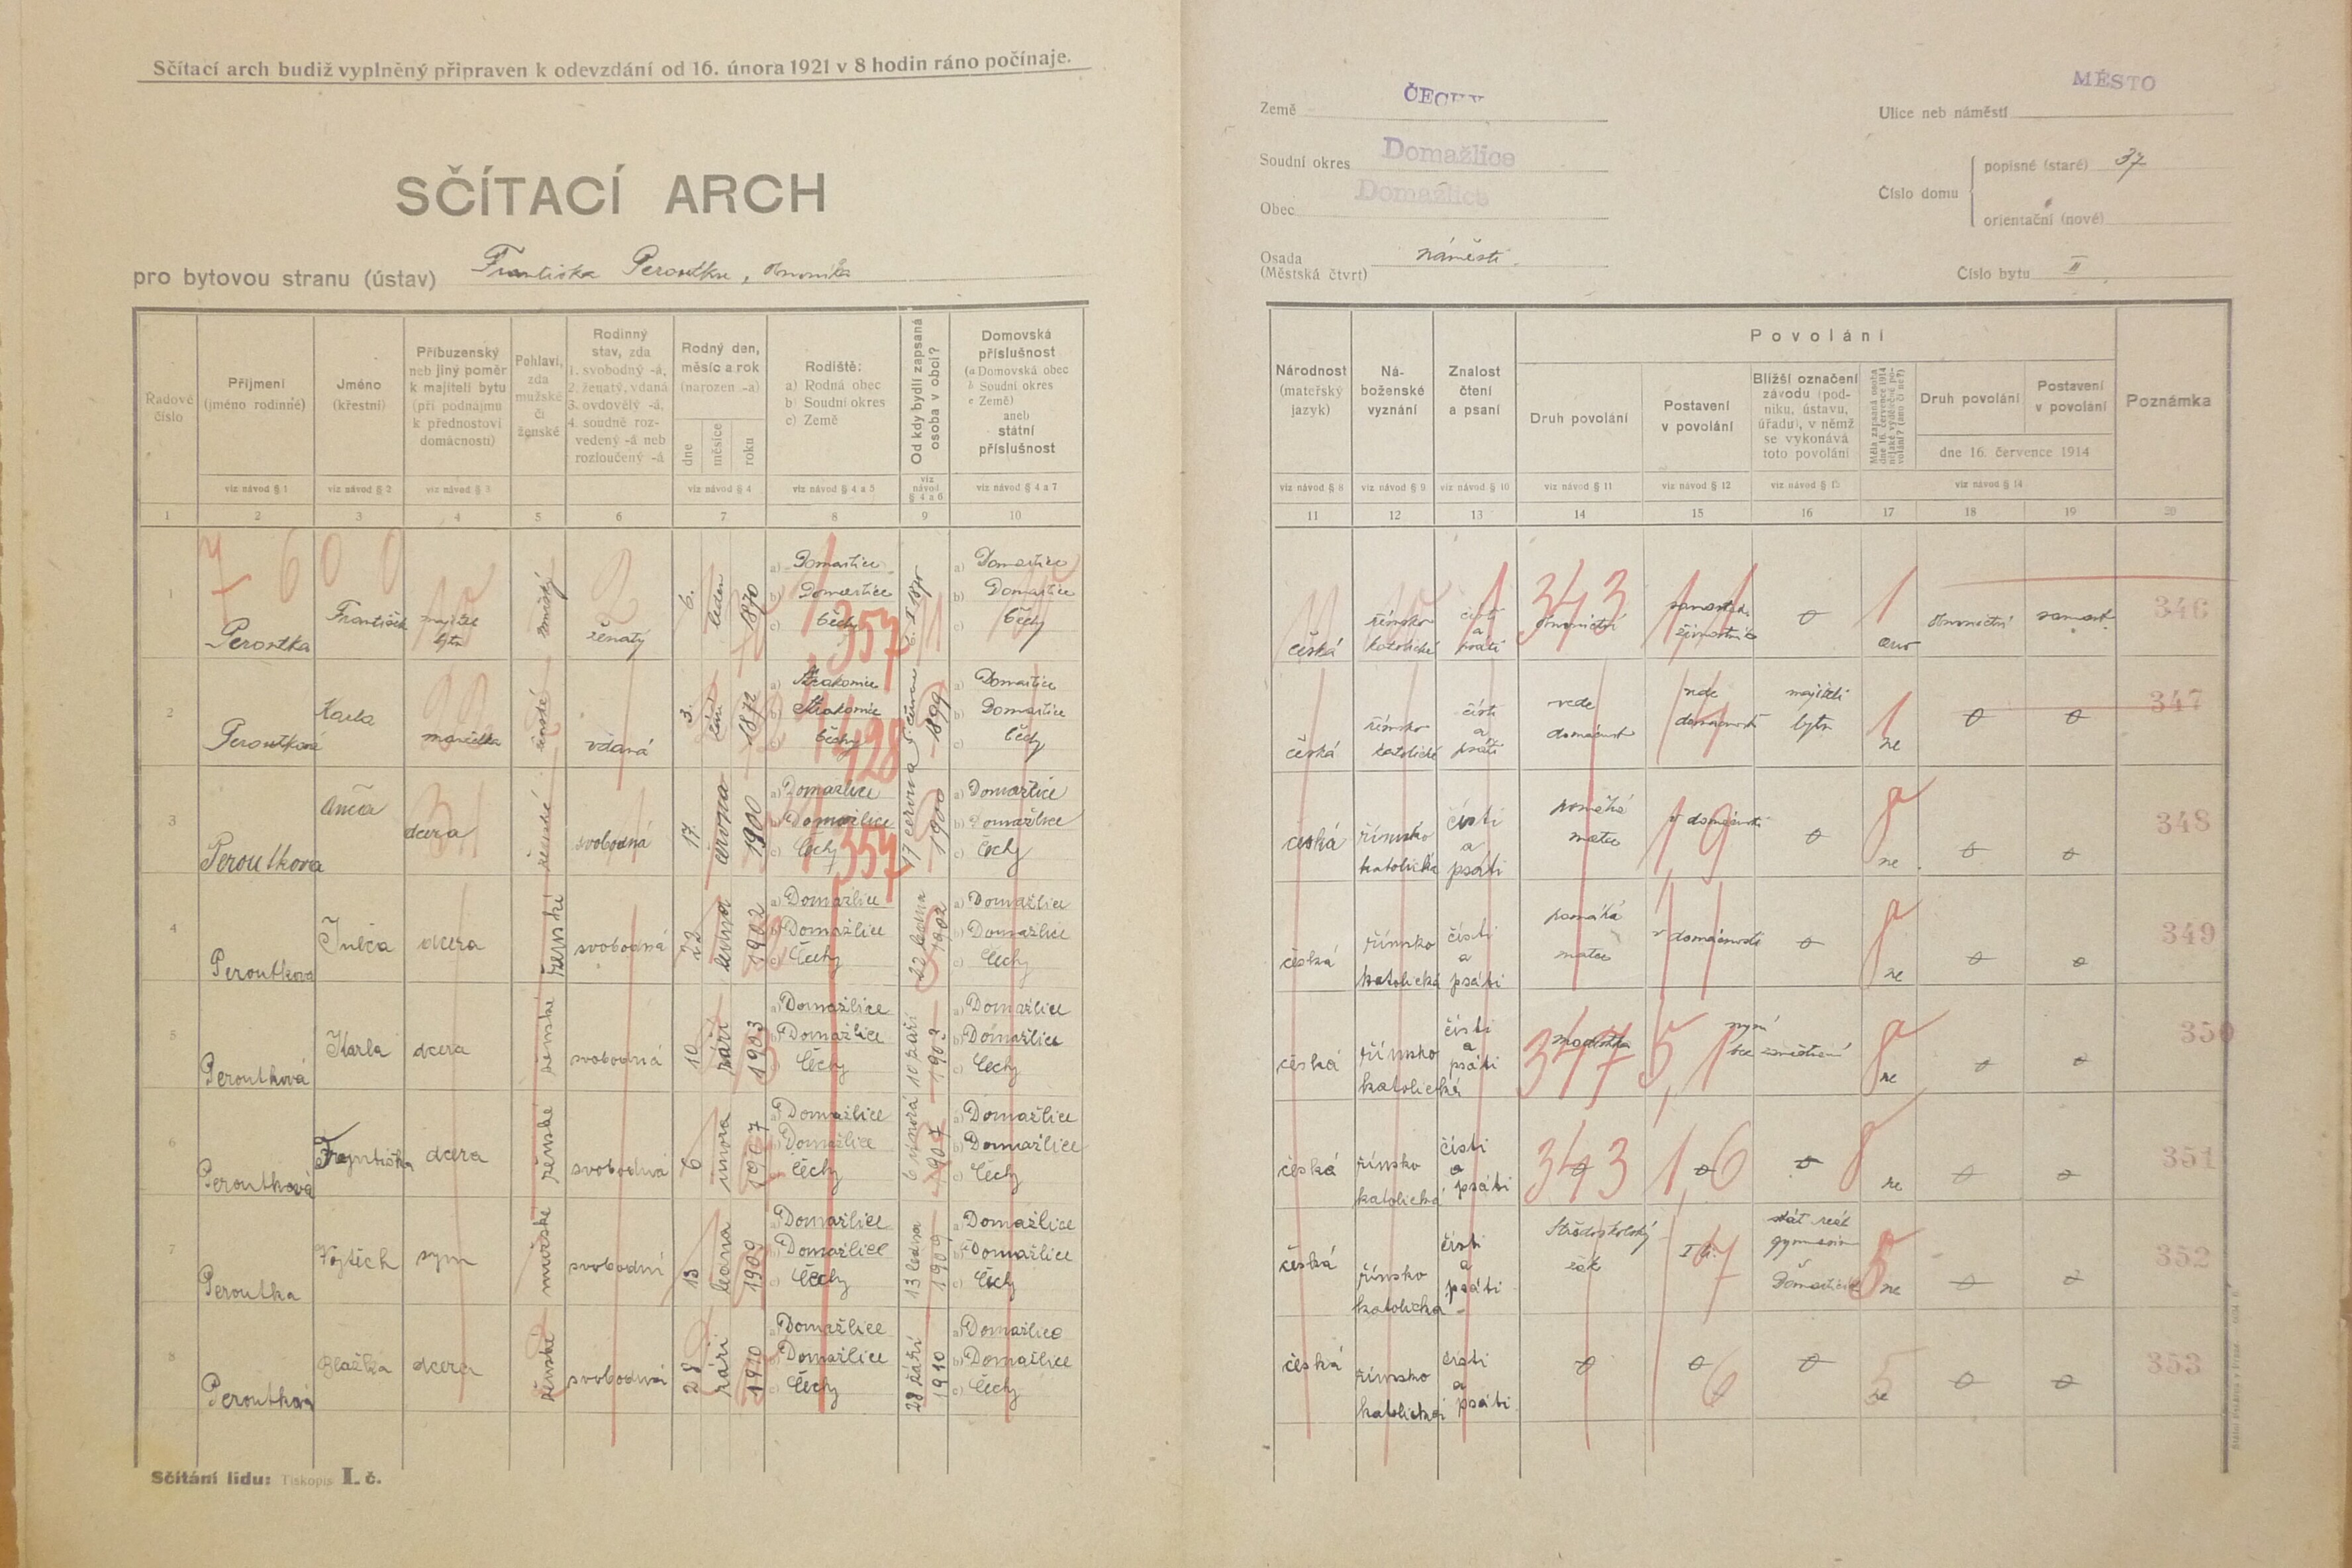 Sčítací arch budiž vyplněný připraven k odevzdání od 16. února 1921 v 8 hodin ráno počínaje.
SČÍTACÍ ARCH
pro bytovou stranu (ústav) Františka Peroutku, obuvníka
Země ČECHY
Soudní okres Domažlice
Obec Domažlice
Osada (Městská čtvrť) náměstí.
Ulice neb náměstí MĚSTO
Číslo domu
popisné (staré) 37
orientační (nové)
Číslo bytu II
Řadové číslo
Příjmení (jméno rodinné)
Jméno (křestní)
Příbuzenský neb jiný poměr k majiteli bytu (při podnájmu k přednostovi domácnosti)
Pohlaví, zda mužské či ženské
Rodinný stav, zda 1. svobodný -á, 2. ženatý, vdaná 3. ovdovělý -á, 4. soudně rozvedený -á neb rozloučený -á
Rodný den, měsíc a rok (narozen -a)
dne
měsíce
roku
Rodiště: a) Rodná obec b) Soudní okres c) Země
Od kdy bydlí zapsaná osoba v obci?
Domovská příslušnost (a Domovská obec b Soudní okres c Země) aneb státní příslušnost
viz návod § 1
viz návod § 2
viz návod § 3
viz návod § 4
viz návod § 4 a 5
viz návod § 4 a 6
viz návod § 4 a 7
1 2 3 4 5 6 7 8 9 10
Národnost (mateřský jazyk)
Náboženské vyznání
Znalost čtení a psaní
Povolání
Druh povolání
Postavení v povolání
Bližší označení závodu (podniku, ústavu, úřadu), v němž se vykonává toto povolání
Měla zapsaná osoba dne 16. července 1914 nějaké výdělečné povolání? (ano či ne?)
Druh povolání
Postavení v povolání
dne 16. července 1914
Poznámka
viz návod § 8
viz návod § 9
viz návod § 10
viz návod § 11
viz návod § 12
viz návod § 13
viz návod § 14
11 12 13 14 15 16 17 18 19 20
1 Peroutka František majitel bytu mužský ženatý 6. leden 1870
a) Domažlice
b) Domažlice
c) Čechy
6. I. 1870
a) Domažlice
b) Domažlice
c) Čechy
česká římsko katolické čísti a psáti obuvnictví samostatný živnostník 0 ano obuvnictví samost. 346
2 Peroutková Karla manželka ženské vdaná 3. září 1872
a) Strakonice
b) Strakonice
c) Čechy
1899
a) Domažlice
b) Domažlice
c) Čechy
česká římsko katolické čísti a psáti vede domácnost vede domácnost majiteli bytu ne 0 0 347
3 Peroutkova Anča dcera ženské svobodná 17. června 1900
a) Domažlice
b) Domažlice
c) Čechy
17 června 1900
a) Domažlice
b) Domažlice
c) Čechy
česká římsko katolická čísti a psáti pomáhá matce v domácnosti 0 ne 0 0 348
4 Peroutková Julča dcera ženské svobodná 22 ledna 1902
a) Domažlice
b) Domažlice
c) Čechy
22 ledna 1902
a) Domažlice
b) Domažlice
c) Čechy
česká římsko katolická čísti a psáti pomáhá matce v domácnosti 0 ne 0 0 349
5 Peroutková Karla dcera ženské svobodná 10 září 1903
a) Domažlice
b) Domažlice
c) Čechy
10 září 1903
a) Domažlice
b) Domažlice
c) Čechy
česká římsko katolická čísti a psáti modistka nyní bez zaměstnání ne 0 0 350
6 Peroutková Františka dcera ženské svobodná 6 února 1907
a) Domažlice
b) Domažlice
c) Čechy
6 února 1907
a) Domažlice
b) Domažlice
c) Čechy
česká římsko katolická čísti a psáti 0 0 0 ne 0 0 351
7 Peroutka Vojtěch syn mužské svobodní 13 ledna 1909
a) Domažlice
b) Domažlice
c) Čechy
13 ledna 1909
a) Domažlice
b) Domažlice
c) Čechy
česká římsko katolická čísti a psáti Středoškolský žák stát. reál. gymnasium ne 0 0 352
8 Peroutková Blažka dcera ženské svobodná 28 září 1910
a) Domažlice
b) Domažlice
c) Čechy
28 září 1910
a) Domažlice
b) Domažlice
c) Čechy
česká římsko katolická čísti a psáti 0 0 0 ne 0 0 353
Sčítání lidu: Tiskopis I. č.